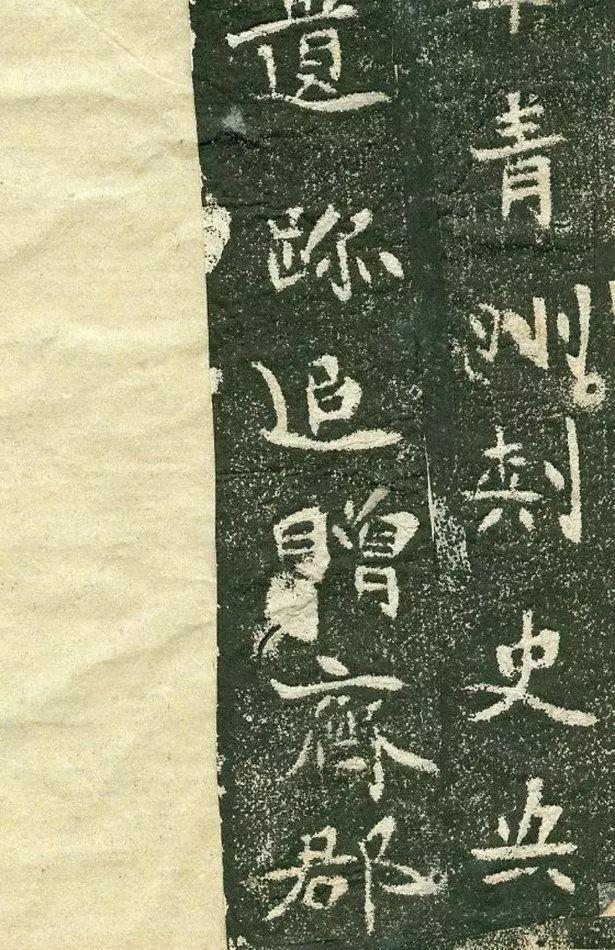 青州刺史
遺跡追贈齊郡